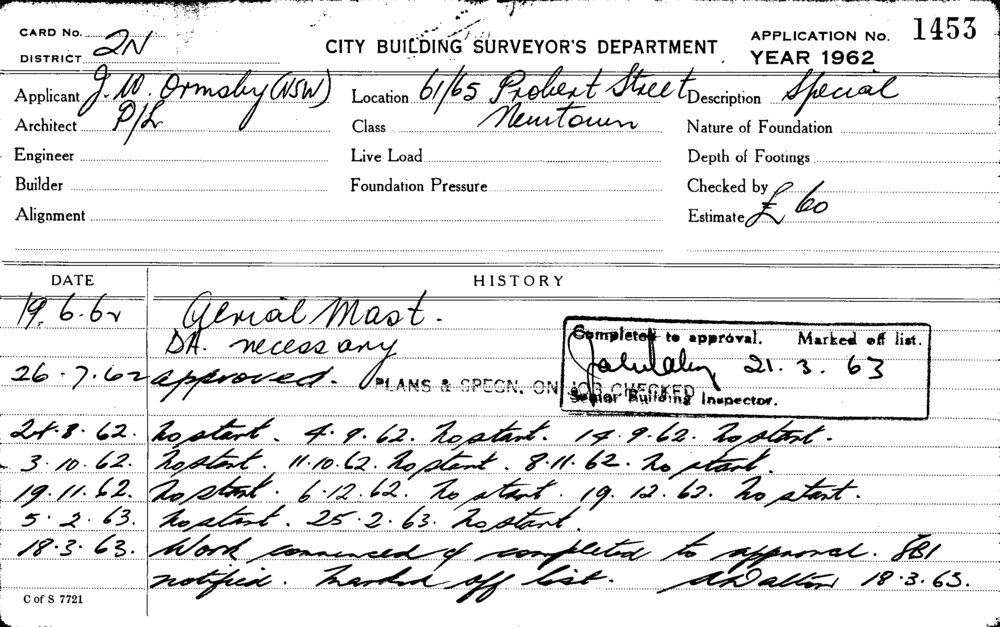 CARD No. 2N
DISTRICT
CITY BUILDING SURVEYOR'S DEPARTMENT
APPLICATION No. 1453
YEAR 1962
Applicant J. W. Ormsby (NSW) Location 61/65 Probert Street Description Special
Architect P/L Class Newtown Nature of Foundation
Engineer Live Load Depth of Footings
Builder Foundation Pressure Checked by
Alignment Estimate £ 60
DATE HISTORY
19.6.62 Aerial Mast.
DA. necessary
Completed to approval. Marked off list.
21.3.63
Senior Building Inspector.
26.7.62 approved. PLANS & SPECN. ON JOB CHECKED
28.8.62. No start. 4.9.62. No start. 14.9.62. No start.
3.10.62. No start. 11.10.62. No start. 8.11.62. No start.
19.11.62. No start. 6.12.62. No start. 19.12.62. No start.
5.2.63. No start. 25.2.63. No start.
18.3.63. Work commenced & completed to approval. SBI
notified. Marked off list. A Dalton 18.3.63.
C of S 7721